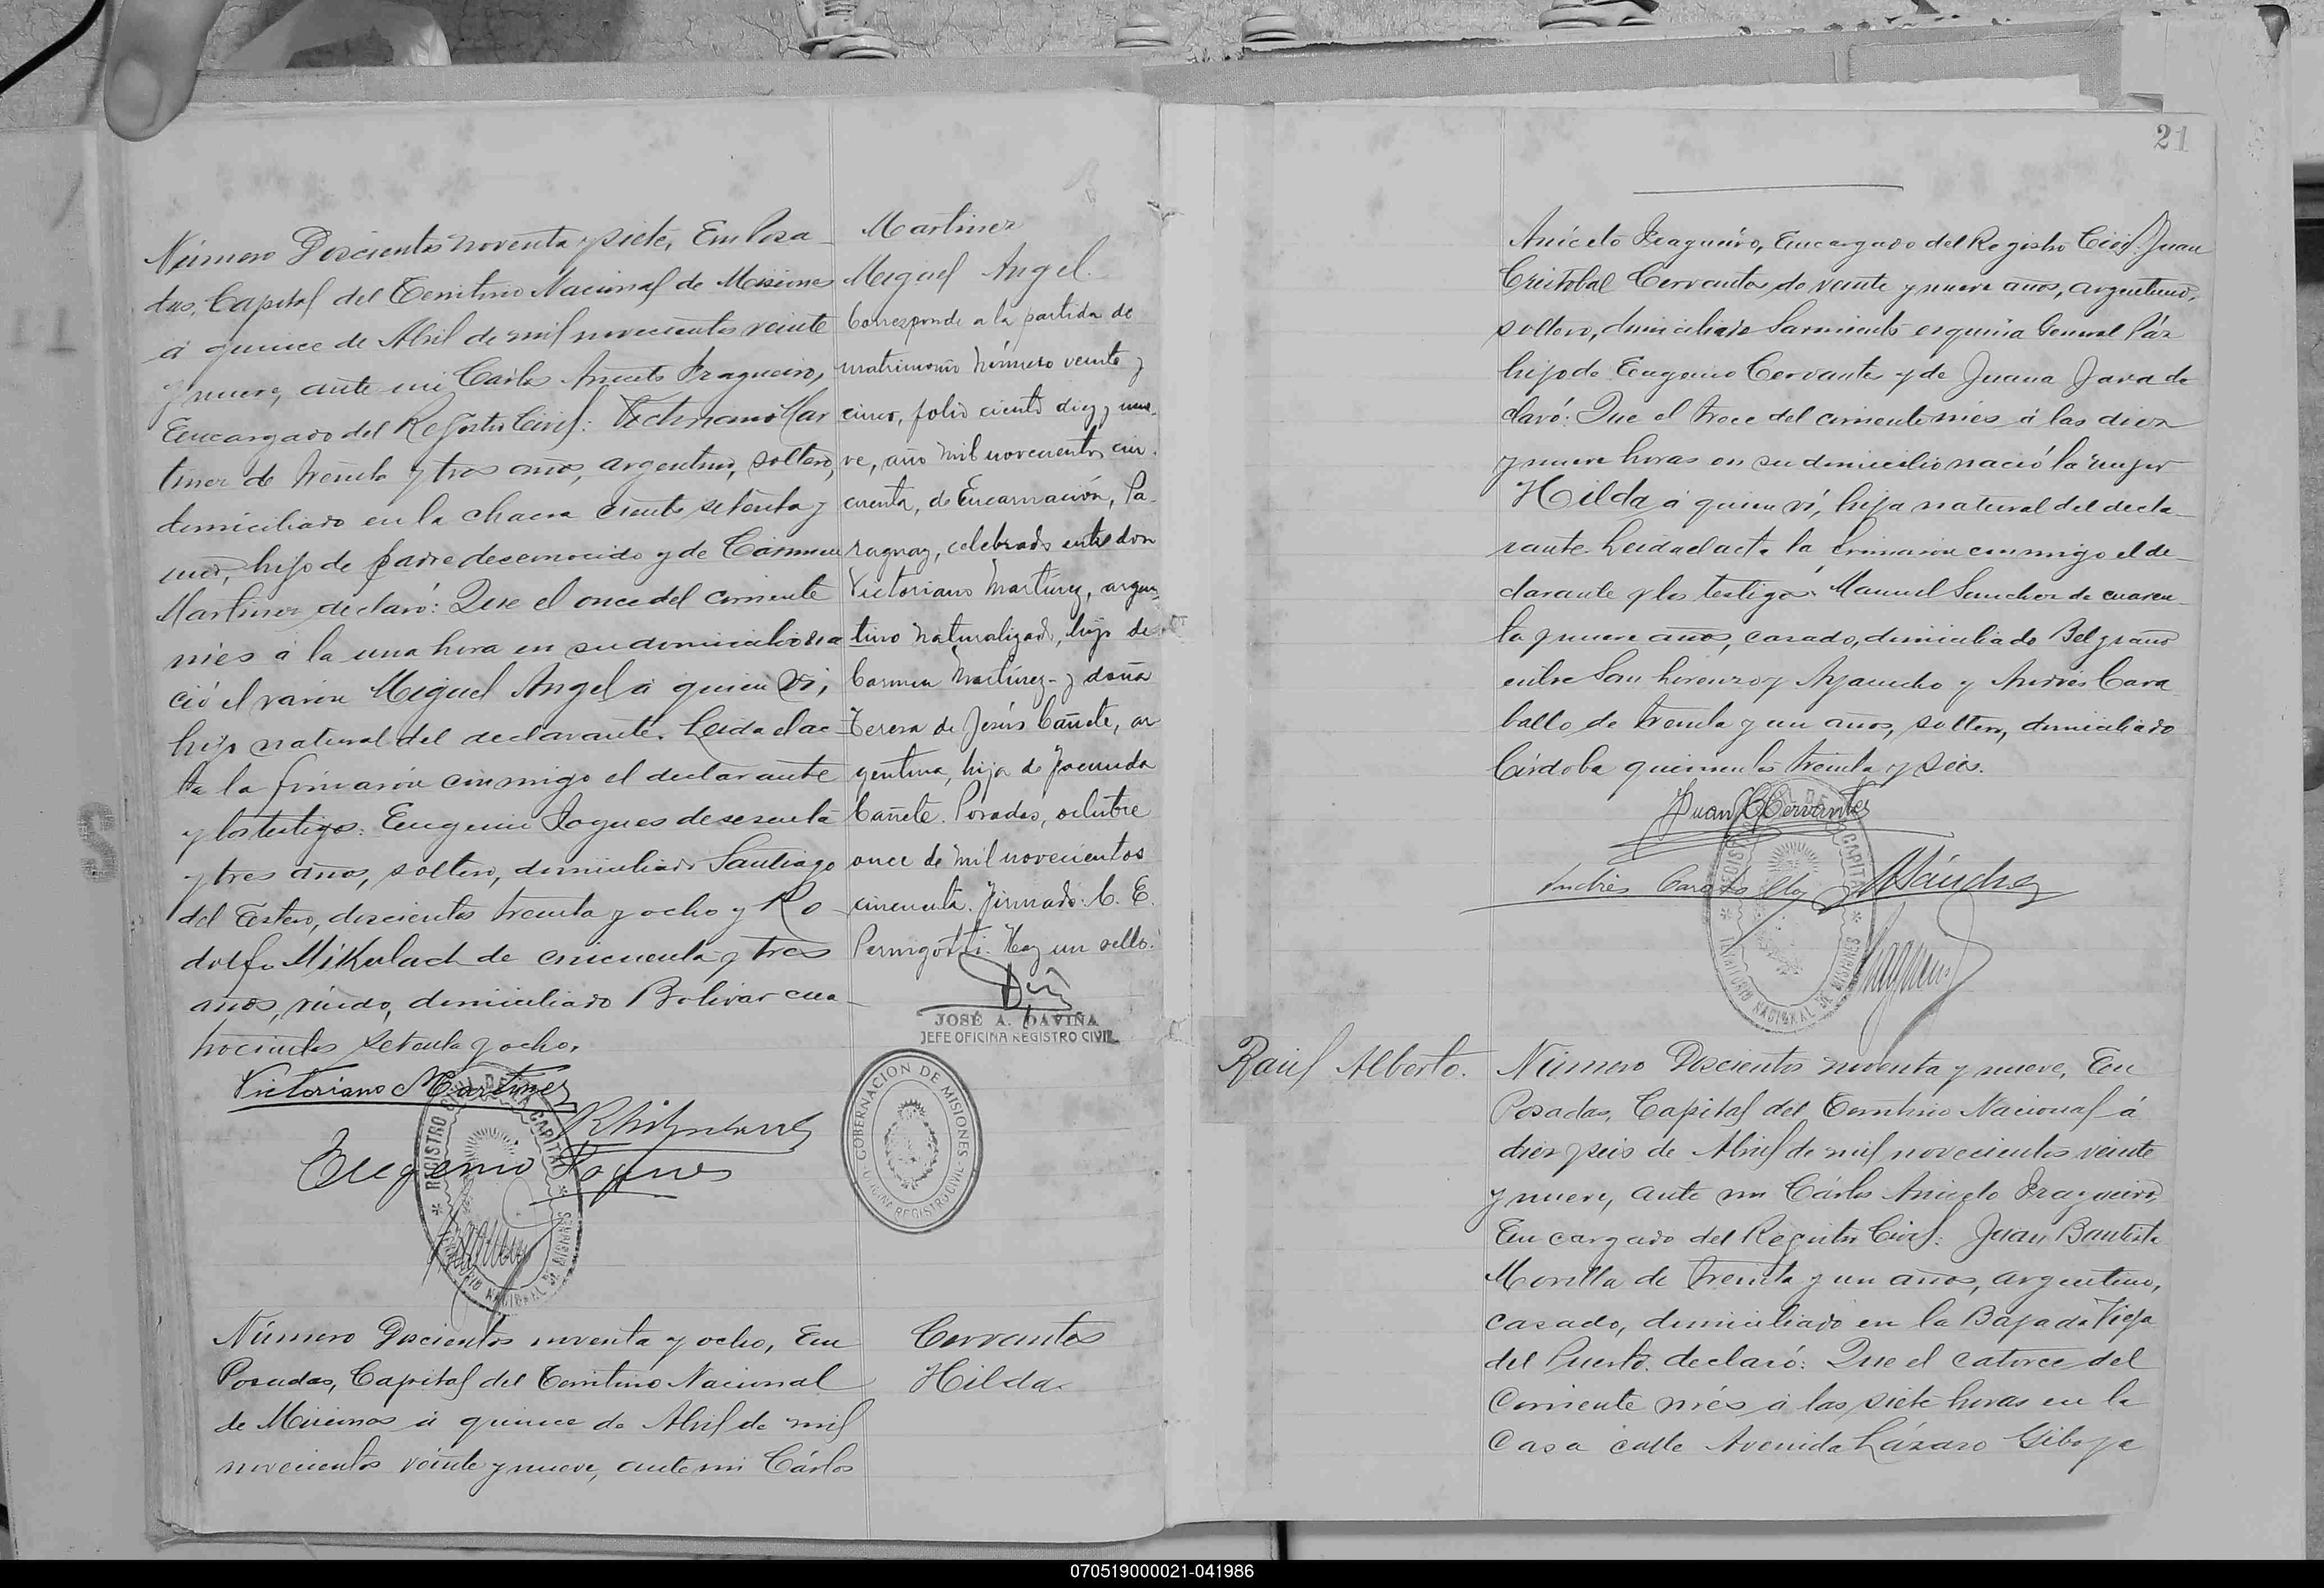 Número Doscientos noventa y siete, En Posa-
das, Capital del Territorio Nacional de Misiones
á quince de Abril de mil novecientos veinte
y nueve, ante mi Carlos Aniceto Fragueiro,
Encargado del Registro Civil: Victoriano Mar
tinez de treinta y tres años, argentino, soltero,
domiciliado en la chacra ciento setenta y
uno, hijo de padre desconocido y de Cármen
Martinez declaró: Que el once del corriente
més á la una hora en su domicilio na
ció el varón Miguel Angel á quien ví,
hijo natural del declarante. Leida el ac-
ta la firmaron conmigo el declarante
y los testigos: Eugenio Pogues de sesenta
y tres años, soltero, domiciliado Santiago
del Estero, doscientos treinta y ocho y Ro-
dolfo Mikulach de cincuenta y tres
años, viudo, domiciliado Bolivar cua-
trocientos setenta y ocho.
Victoriano Martinez
Eugenio Pogues
REGISTRO CIVIL DE LA CAPITAL
TERRITORIO NACIONAL DE MISIONES
Martinez
Miguel Angel.
Corresponde a la partida de
matrimonio número veinte y
cinco, folio ciento diez y nue-
ve, año mil novecientos cin-
cuenta, de Encarnación, Pa-
raguay, celebrado entre don
Victoriano Martínez, argen
tino naturalizado, hijo de
Carmen Martínez- y doña
Teresa de Jesús Cañete, ar
gentina, hija de Facunda
Cañete. Posadas, octubre
once de mil novecientos
cincuenta. Firmado: C. E.
Pernigotti. Hay un sello.
JOSÉ A. DAVIÑA
JEFE OFICINA REGISTRO CIVIL
GOBERNACION DE MISIONES
OFICINA REGISTRO CIVIL
Número Doscientos noventa y ocho, En
Posadas, Capital del Territorio Nacional
de Misiones á quince de Abril de mil
novecientos veinte y nueve, ante mi Cárlos
Cervantes
Hilda
21
Aniceto Fragueiro, Encargado del Registro Civil: Juan
Cristobal Cervantes de veinte y nueve años, argentino,
soltero, domiciliado Sarmiento esquina General Páz
hijo de Eugenio Cervantes y de Juana Jara de
claró: Que el trece del corriente més á las diez
y nueve horas en su domicilio nació la mujer
Hilda á quien ví, hija natural del decla-
rante. Leida el acta la firmaron conmigo el de-
clarante y los testigos: Manuel Sanchez de cuaren-
ta y nueve años, casado, domiciliado Belgrano
entre San Lorenzo y Ayacucho y Andrés Cara
ballo de treinta y un años, soltero, domiciliado
Córdoba quinientos treinta y seis.
Juan C Cervantes
Andrés Caraballo MSánchez
REGISTRO CIVIL DE LA CAPITAL
TERRITORIO NACIONAL DE MISIONES
Raúl Alberto.
Número Doscientos noventa y nueve, En
Posadas, Capital del Territorio Nacional á
diez y seis de Abril de mil novecientos veinte
y nueve, ante mi Cárlos Aniceto Fragueiro,
Encargado del Registro Civil: Juan Bautista
Morilla de treinta y un años, argentino,
casado, domiciliado en la Bajada Vieja
del Puerto. declaró: Que el catorce del
corriente més á las siete horas en la
casa calle Avenida Lázaro Gibaja
070519000021-041986